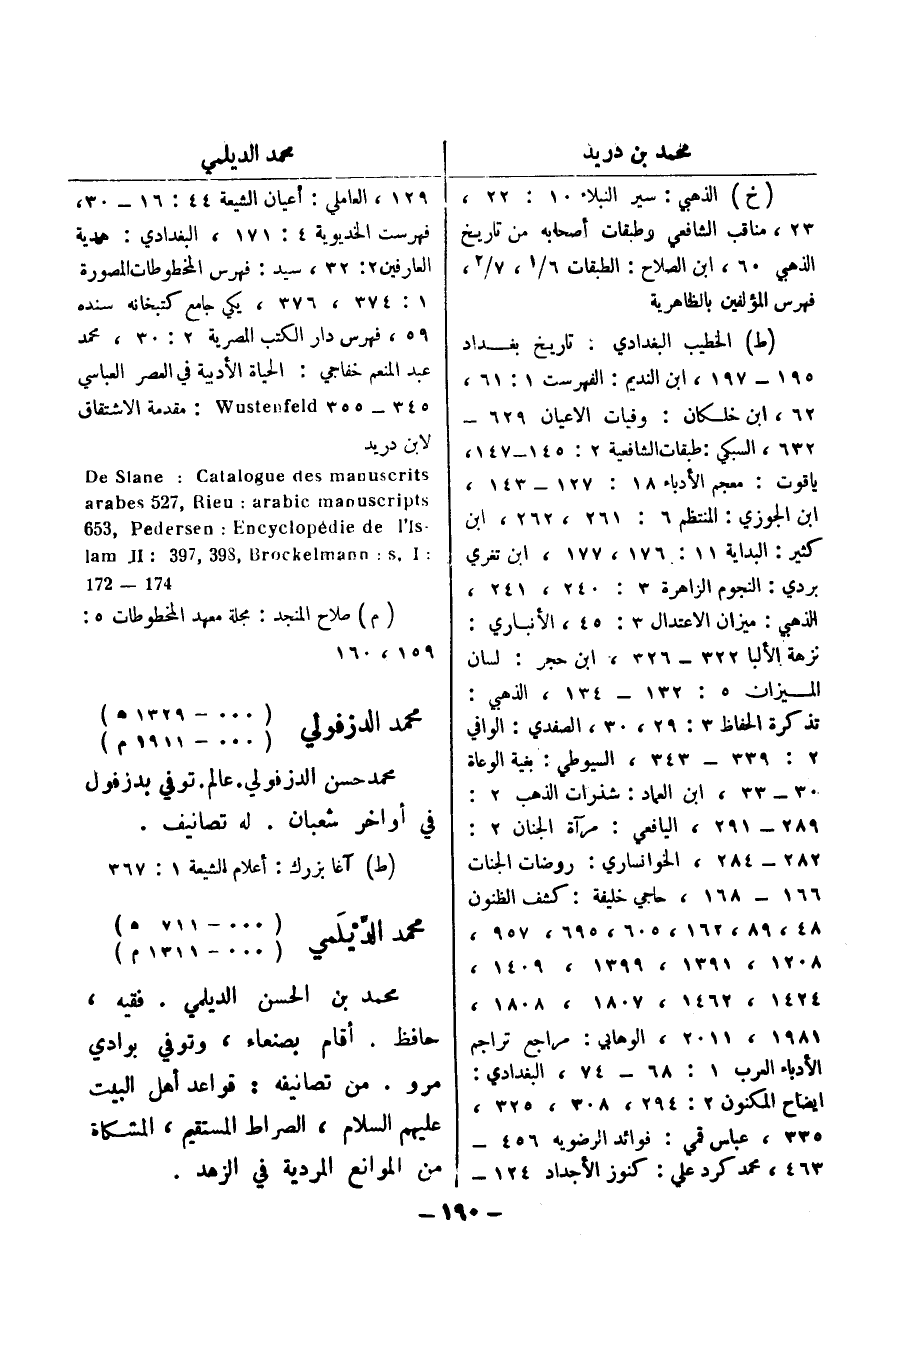 محمد بن دريد
(خ) الذهبي : سير النبلاء ١٠ : ٢٢ ،
٢٣ ، مناقب الشافعي وطبقات أصحابه من تاريخ
الذهبي ٦٠ ، ابن الصلاح : الطبقات ١/٦ ، ٢/٧ ،
فهرس المؤلفين بالظاهرية
(ط) الخطيب البغدادي : تاريخ بغـداد
١٩٥ – ١٩٧ ، ابن النديم : الفهرست ١ : ٦١ ،
٦٢ ، ابن خلـكان : وفيات الاعيان ٦٢٩ –
٦٣٢ ، السبكي : طبقات الشافعية ٢ : ١٤٥–١٤٧،
ياقوت : معجم الأدباء ١٨ : ١٢٧ – ١٤٣ ،
ابن الجوزي : المنتظم ٦ : ٢٦١ ، ٢٦٢ ، ابن
كثير : البداية ١١ : ١٧٦ ، ١٧٧ ، ابن تغري
بردي : النجوم الزاهرة ٣ : ٢٤٠ ، ٢٤١ ،
الذهبي : ميزان الاعتدال ٣ : ٤٥ ، الأنبـاري :
نزهة الألبا ٣٢٢ – ٣٢٦ ، ابن حجر : لسان
المـيزان ٥ : ١٣٢ – ١٣٤ ، الذهبي :
تذكرة الحفاظ ٣ : ٢٩ ، ٣٠ ، الصفدي : الوافي
٢ : ٣٣٩ – ٣٤٣ ، السيوطي : بغية الوعاة
٣٠ – ٣٣ ، ابن العماد : شذرات الذهب ٢ :
٢٨٩ – ٢٩١ ، اليافعي : مرآة الجنان ٢ :
٢٨٢ – ٢٨٤ ، الخوانساري : روضات الجنات
١٦٦ – ١٦٨ ، حاجي خليفة : كشف الظنون
٤٨ ، ٨٩ ، ١٦٢ ، ٦٠٥ ، ٦٩٥ ، ٩٥٧ ،
١٢٠٨ ، ١٣٩١ ، ١٣٩٩ ، ١٤٠٩ ،
١٤٢٤ ، ١٤٦٢ ، ١٨٠٧ ، ١٨٠٨ ،
١٩٨١ ، ٢٠١١ ، الوهابي : مراجع تراجم
الأدباء العرب ١ : ٦٨ – ٧٤ ، البغدادي :
ايضاح المكنون ٢ : ٢٩٤ ، ٣٠٨ ، ٣٢٥ ،
٣٣٥ ، عباس قمي : فوائد الرضويه ٤٥٦ –
٤٦٣ ، محمد كرد علي : كنوز الأجداد ١٢٤ –
محمد الديلمي
١٢٩ ، العاملي : أعيان الشيعة ٤٤ : ١٦ – ٣٠،
فهرست الخديوية ٤ : ١٧١ ، البغدادي : هدية
العارفين ٢ : ٣٢ ، سيد : فهرس المخطوطات المصورة
١ : ٣٧٤ ، ٣٧٦ ، يكي جامع كتبخانه سنده
٥٩ ، فهرس دار الكتب المصرية ٢ : ٣٠ ، محمد
عبد المنعم خفاجي : الحياة الأدبية في العصر العباسي
٣٤٥ – ٣٥٥ Wustenfeld : مقدمة الاشتقاق
لابن دريد
De Slane : Catalogue des manuscrits
arabes 527, Rieu : arabic manuscripts
653, Pedersen : Encyclopédie de l'Is-
lam II : 397, 398, Brockelmann : s, I :
172 — 174
(م) صلاح المنجد : مجلة معهد المخطوطات ٥ :
١٥٩ ، ١٦٠
محمد الدزفولي (٠٠٠ – ١٣٢٩ ه)
(٠٠٠ – ١٩١١ م)
محمد حسن الدزفولي. عالم. توفي بدزفول
في أواخر شعبان . له تصانيف .
(ط) آغا بزرك : أعلام الشيعة ١ : ٣٦٧
محمد الدَّيْلَمي (٠٠٠ – ٧١١ ه)
(٠٠٠ – ١٣١١ م)
محمد بن الحسن الديلمي . فقيه ،
حافظ . أقام بصنعاء ، وتوفي بوادي
مرو . من تصانيفه : قواعد أهل البيت
عليهم السلام ، الصراط المستقيم ، المشـكاة
من الموانع المردية في الزهد .
– ١٩٠ –